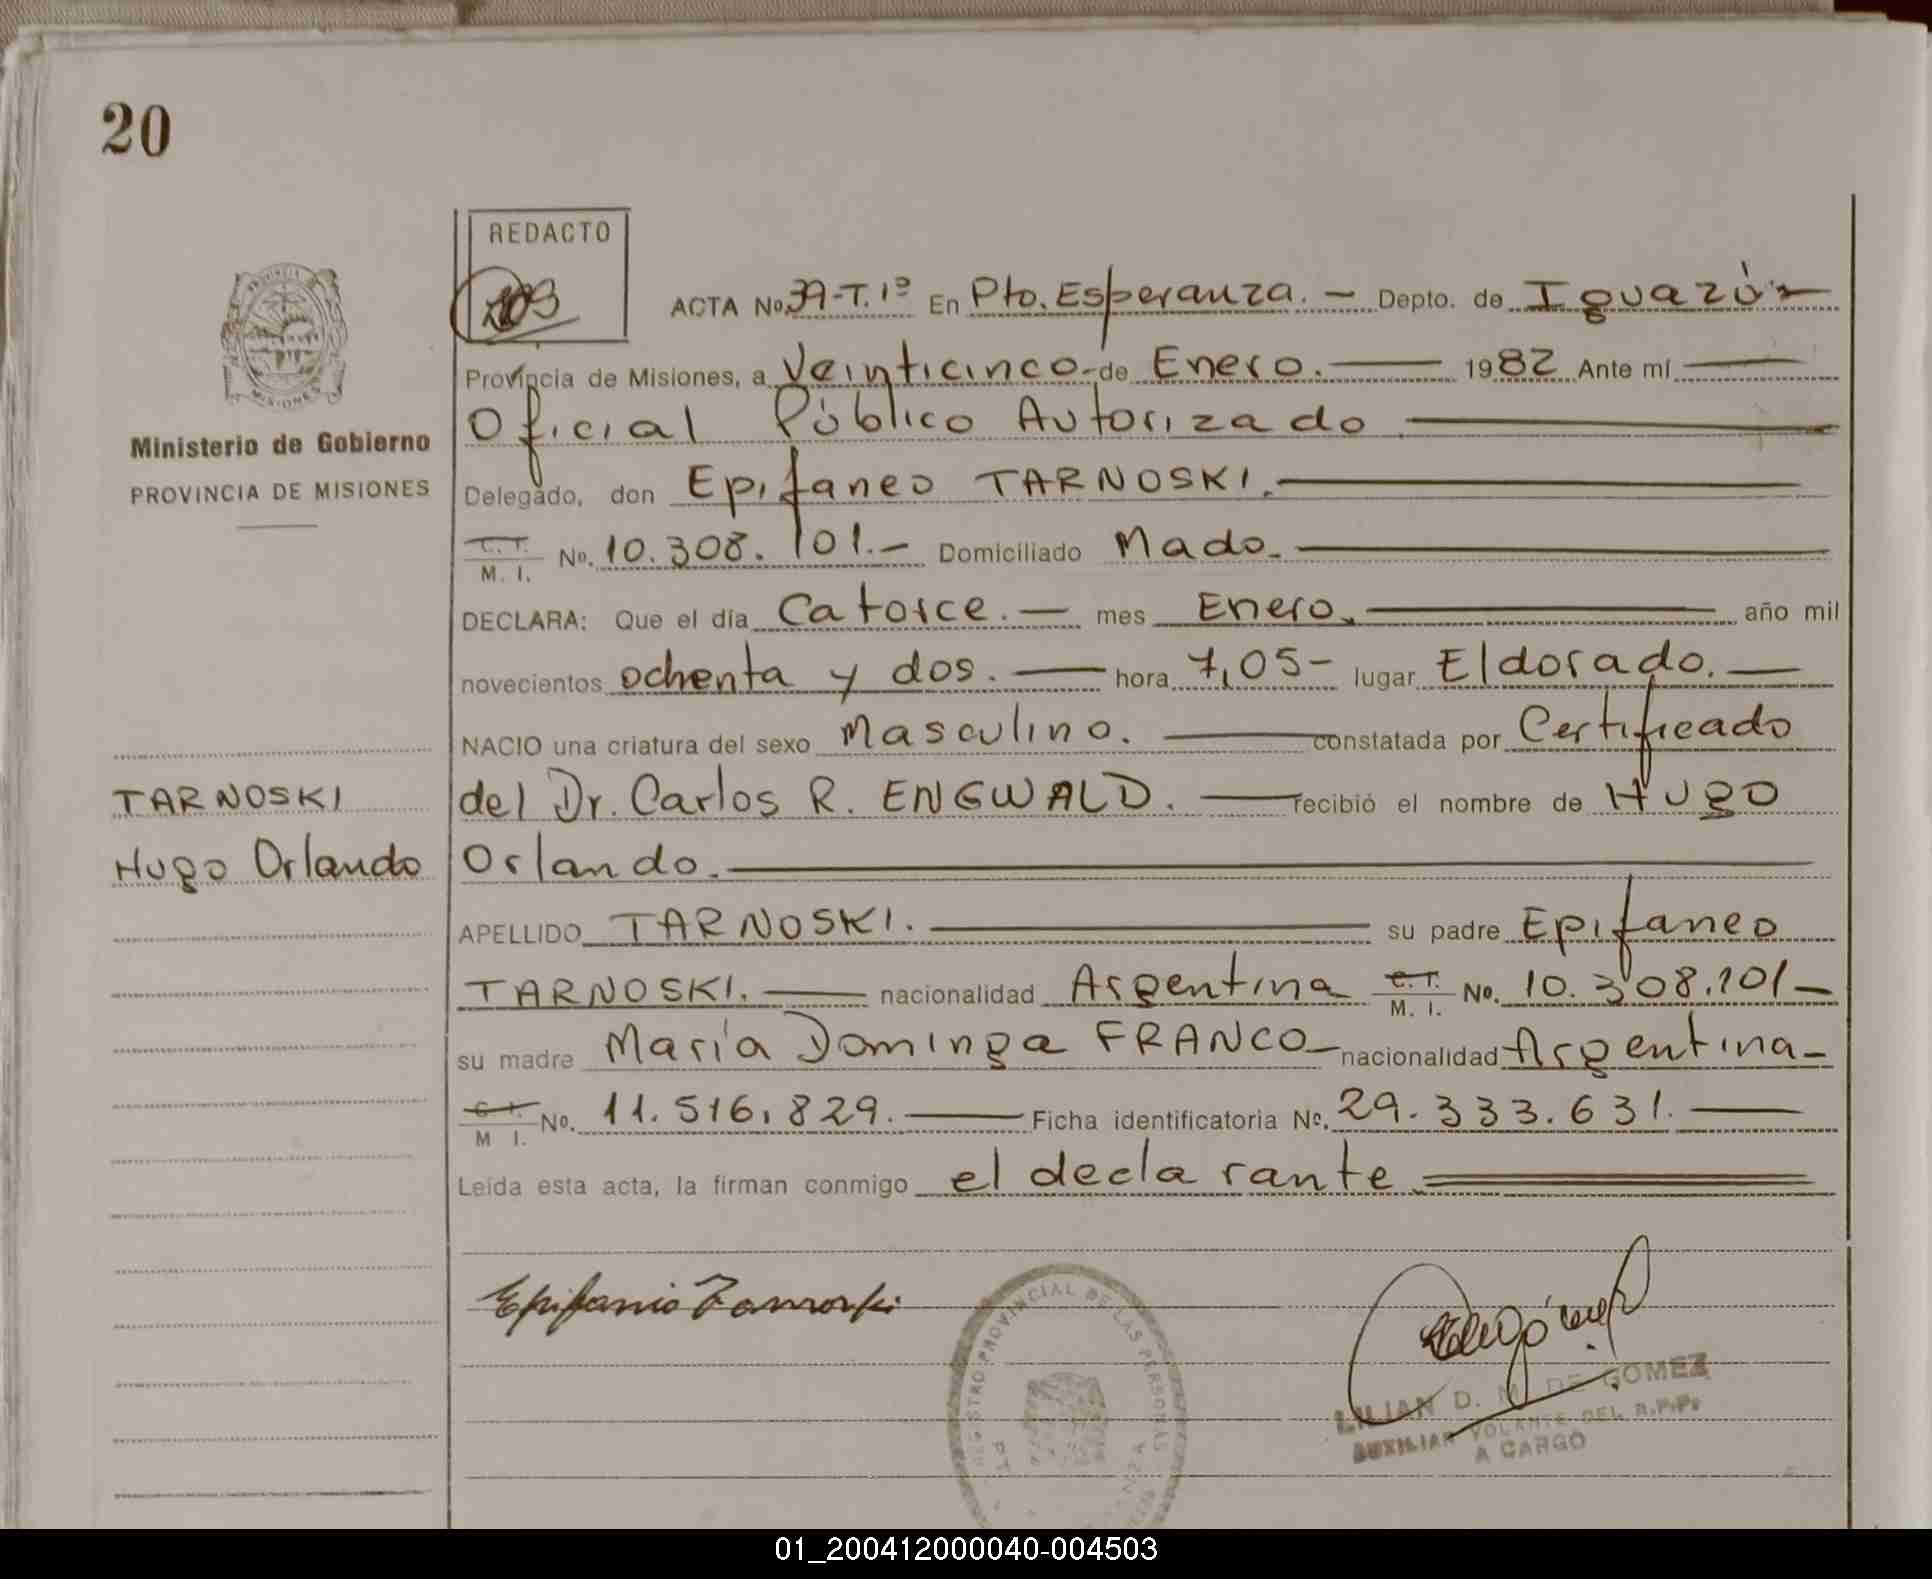 20
REDACTO
203
ACTA No. 39-T.1º En Pto. Esperanza. - Depto. de Iguazú
Provincia de Misiones, a Veinticinco de Enero. 1982 Ante mí
Oficial Público Autorizado
Delegado, don Epifaneo TARNOSKI.
C. I. M. I. No. 10.308.101.- Domiciliado Mado.
DECLARA: Que el día Catorce. - mes Enero. año mil
novecientos ochenta y dos. hora 7,05- lugar Eldorado.
NACIO una criatura del sexo Masculino. constatada por Certificado
del Dr. Carlos R. ENGWALD. recibió el nombre de Hugo
Orlando.
APELLIDO TARNOSKI. su padre Epifaneo
TARNOSKI. nacionalidad Argentina C. I. M. I. No. 10.308.101-
su madre María Dominga FRANCO nacionalidad Argentina-
C. I. M I. No. 11.516.829. Ficha identificatoria No. 29.333.631.
Leída esta acta, la firman conmigo el declarante
Ministerio de Gobierno
PROVINCIA DE MISIONES
TARNOSKI
Hugo Orlando
PROVINCIA
MISIONES
Epifanio Tarnoski
REGISTRO PROVINCIAL DE LAS PERSONAS
LILIAN D. M. DE GOMEZ
AUXILIAR VOLANTE DEL R.P.P.
A CARGO
01_200412000040-004503